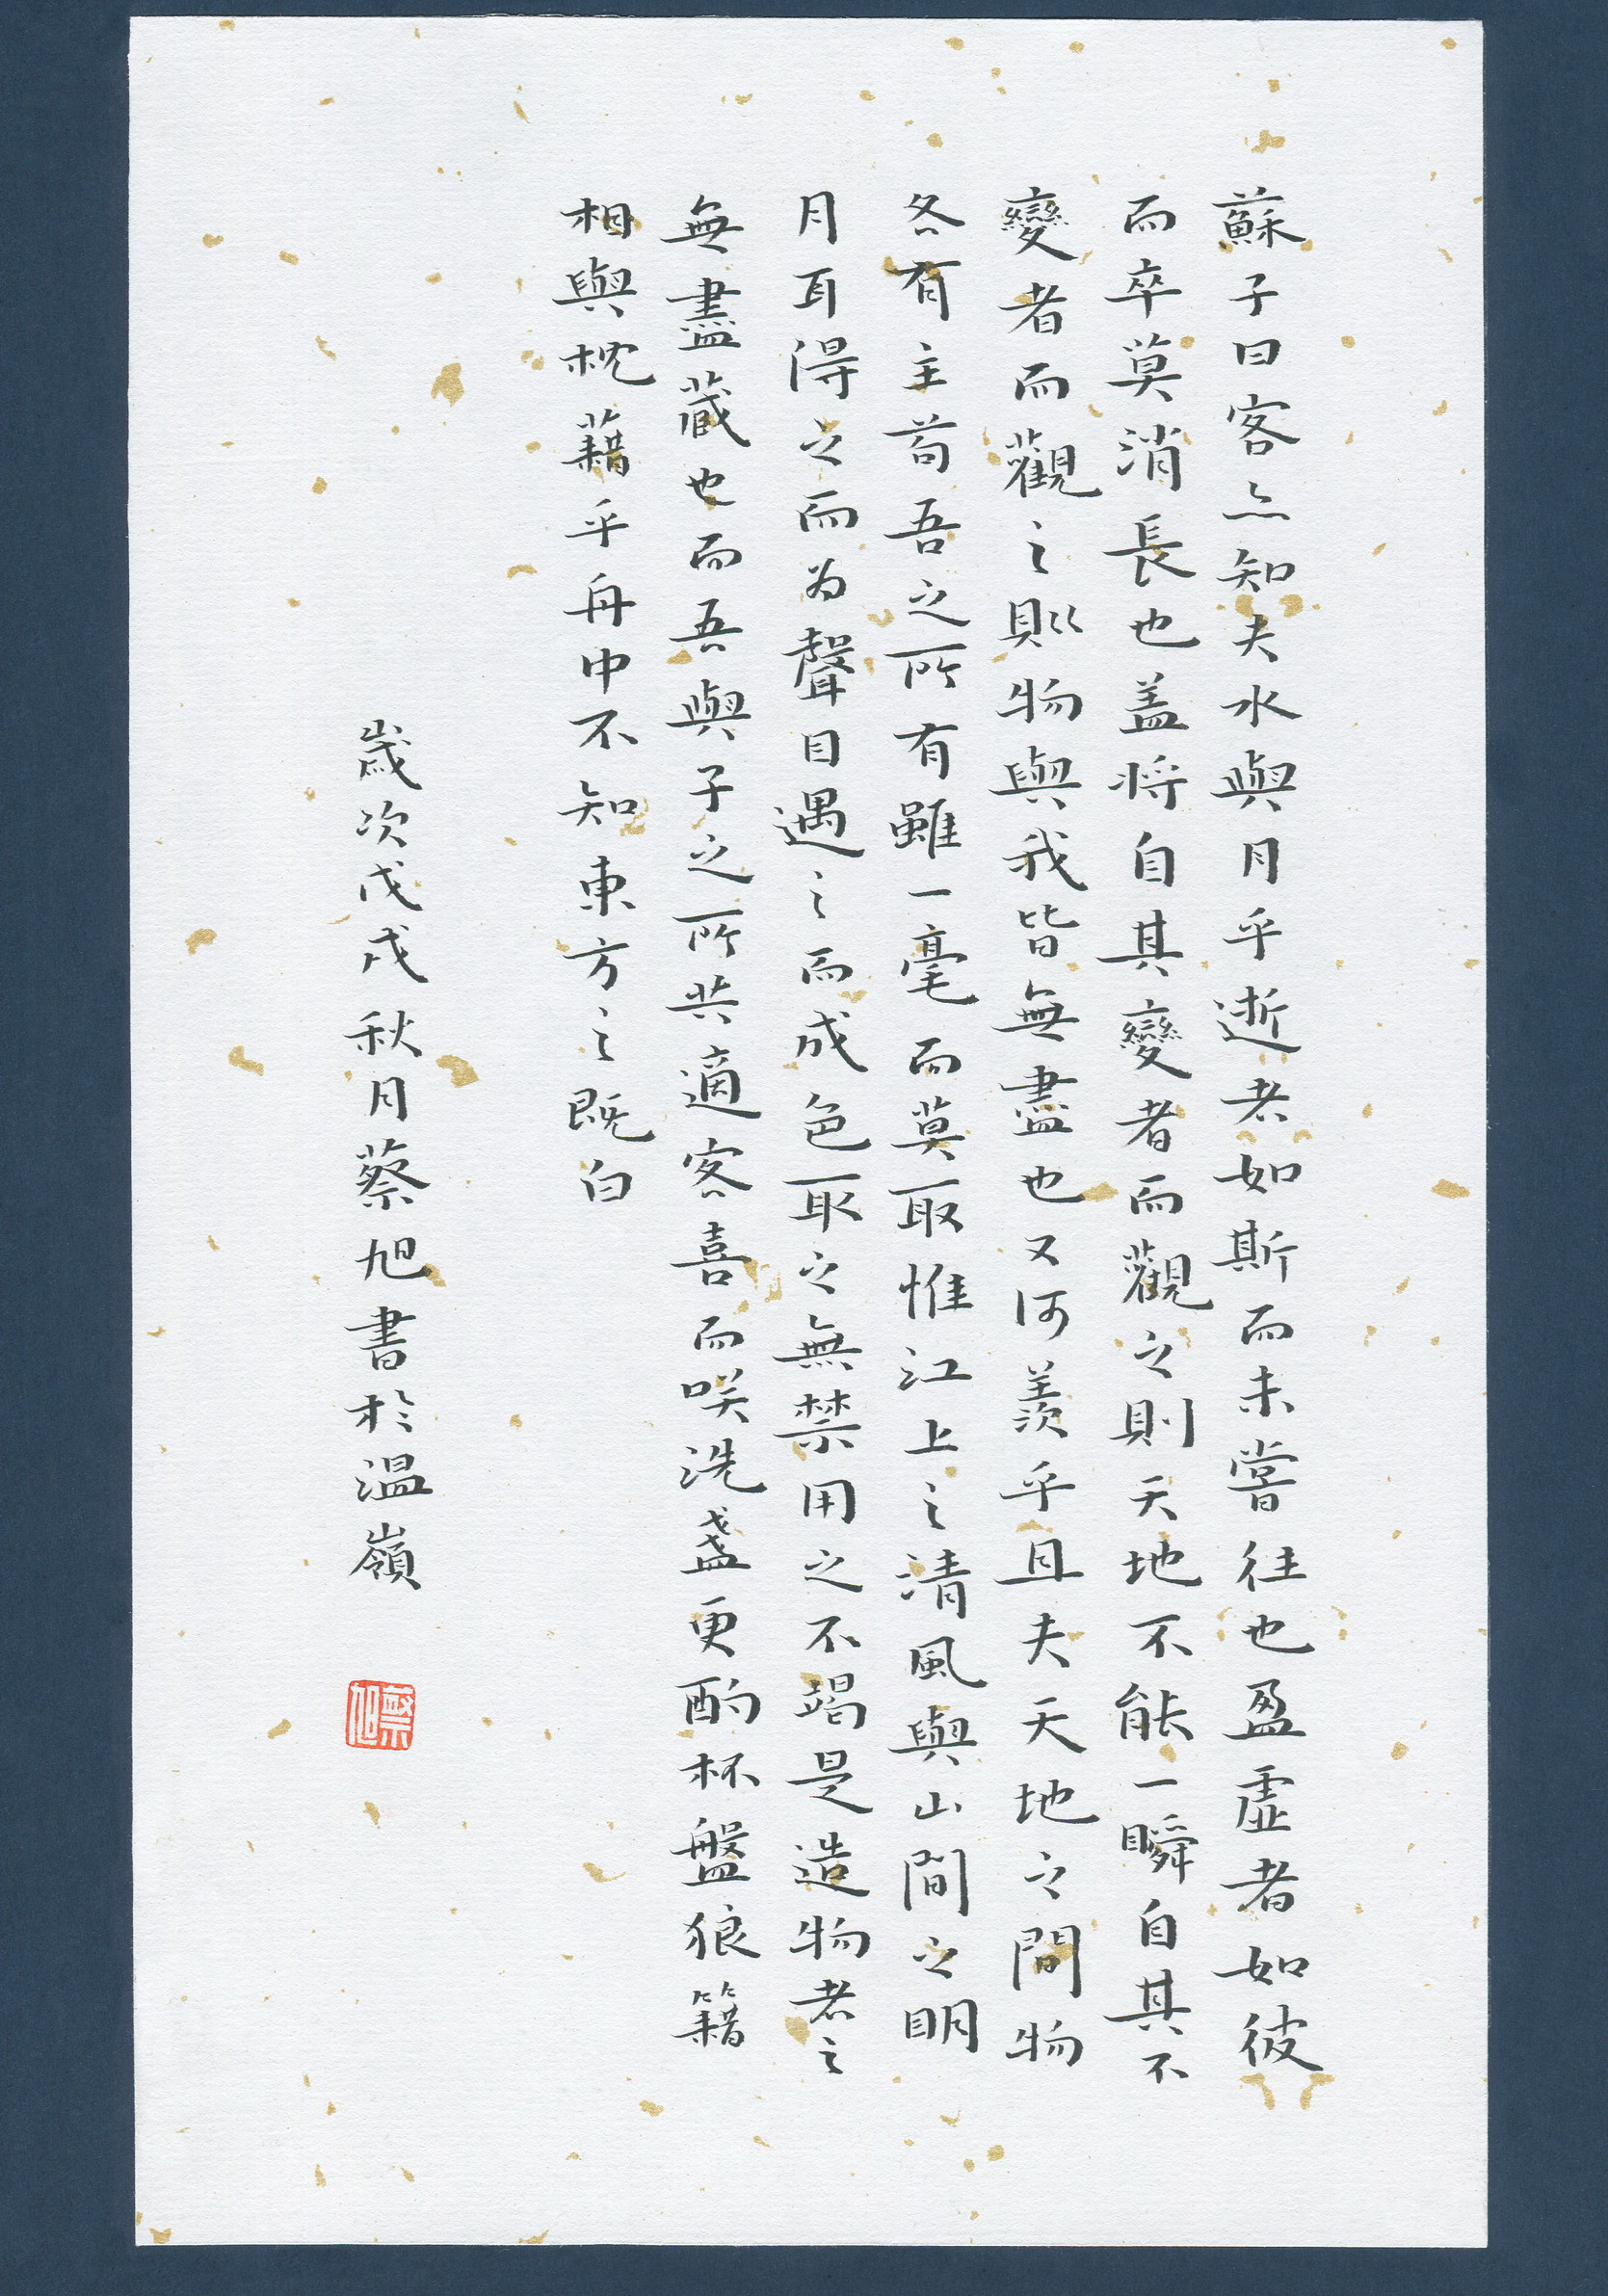 蘇子曰客亦知夫水與月乎逝者如斯而未嘗往也盈虛者如彼
而卒莫消長也蓋將自其變者而觀之則天地不能一瞬自其不
變者而觀之則物與我皆無盡也又何羨乎且夫天地之間物
各有主苟吾之所有雖一毫而莫取惟江上之清風與山間之明
月耳得之而為聲目遇之而成色取之無禁用之不竭是造物者之
無盡藏也而吾與子之所共適客喜而咲洗盞更酌杯盤狼籍
相與枕藉乎舟中不知東方之既白
歲次戊戌秋月蔡旭書於溫嶺
蔡旭